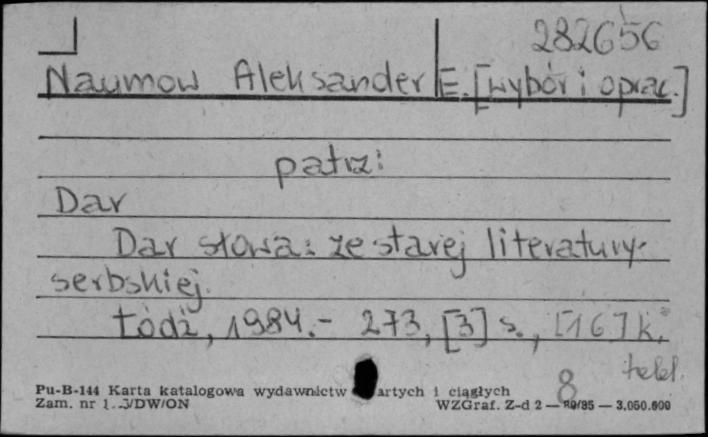 282656
Naumow Aleksander E. [wybór i oprac.]
patrz:
Dar
Dar słowa: ze starej literatury
serbskiej.
Łódź, 1984.- 273, [3] s., [16] k.
tabl.
8
Pu-B-144 Karta katalogowa wydawnictw artych i ciągłych
Zam. nr /DW/ON WZGraf. Z-d 2 — /85 — 3.050.000